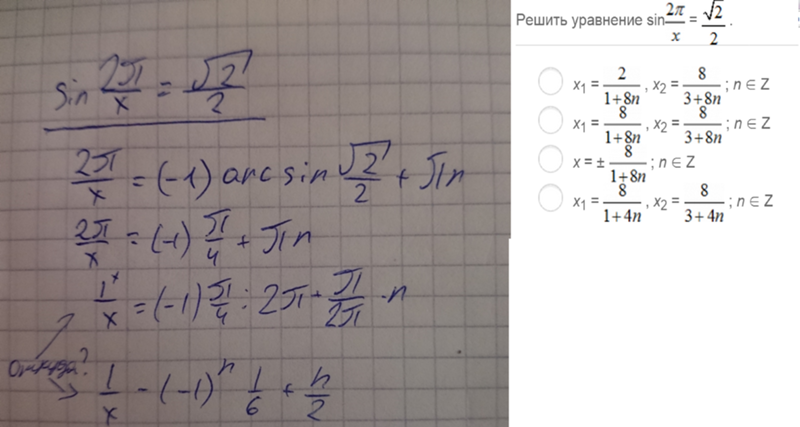 sin 2π/x = √2/2
2π/x = (-1) arcsin √2/2 + πn
2π/x = (-1) π/4 + πn
1/x = (-1) π/4 : 2π + π/2π · n
откуда?
1/x - (-1)^n 1/6 + n/2
Решить уравнение sin 2π/x = √2/2 .
x₁ = 2/(1+8n) , x₂ = 8/(3+8n) ; n ∈ Z
x₁ = 8/(1+8n) , x₂ = 8/(3+8n) ; n ∈ Z
x = ± 8/(1+8n) ; n ∈ Z
x₁ = 8/(1+4n) , x₂ = 8/(3+4n) ; n ∈ Z